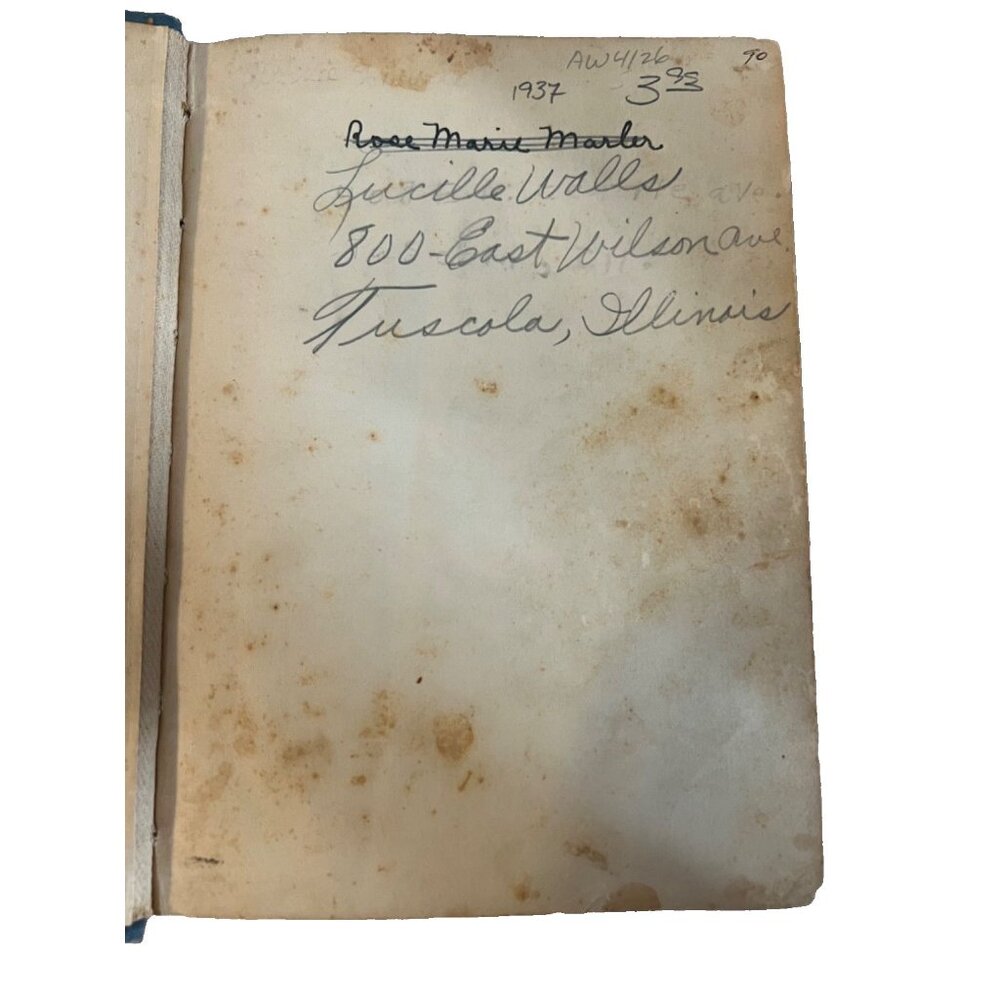 AW4/26
90
1937
3 95
Rose Marie Marler
Lucille Walls
800-East Wilson Ave.
Tuscola, Illinois